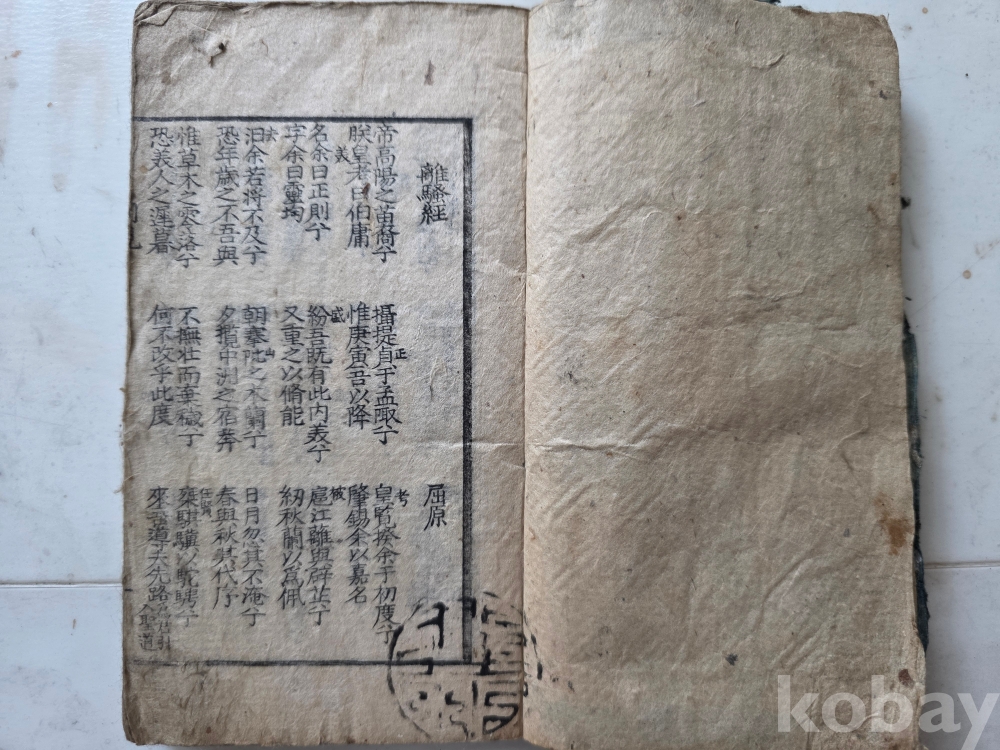 離騷經
屈原
帝高陽之苗裔兮
朕皇考曰伯庸
攝提貞于孟陬兮
正
惟庚寅吾以降
皇覽揆余于初度兮
考
肇錫余以嘉名
名余曰正則兮
美
字余曰靈均
紛吾既有此内美兮
盛
又重之以脩能
扈江離與辟芷兮
被
紉秋蘭以爲佩
汨余若將不及兮
恐年歲之不吾與
朝搴阰之木蘭兮
山
夕攬中洲之宿莽
日月忽其不淹兮
春與秋其代序
惟草木之零落兮
恐美人之遲暮
不撫壯而棄穢兮
何不改乎此度
乘騏驥以馳騁兮
任賢
來吾道夫先路
入聖道
kobay